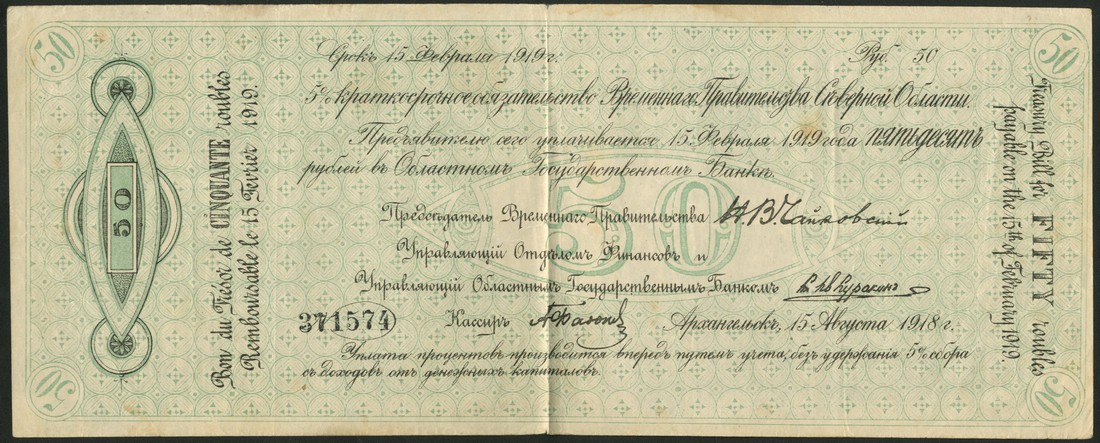 50
50
Срокъ 15 Февраля 1919 г.
Руб. 50
5% краткосрочное обязательство Временнаго Правительства Сѣверной Области.
Предъявителю сего уплачивается 15 Февраля 1919 года пятьдесятъ
рублей въ Областномъ Государственномъ Банкѣ.
50
Предсѣдатель Временнаго Правительства Н. В. Чайковскій
Управляющій Отдѣломъ Финансовъ и
Управляющій Областнымъ Государственнымъ Банкомъ
371574
Кассиръ
Архангельскъ, 15 Августа 1918 г.
Уплата процентовъ производится впередъ путемъ учета, безъ удержанія 5% сбора
съ доходовъ отъ денежныхъ капиталовъ.
50
Bon du Trésor de CINQUANTE roubles
Remboursable le 15 Fevrier 1919.
Treasury Bill for FIFTY roubles
payable on the 15th of February 1919.
50
50